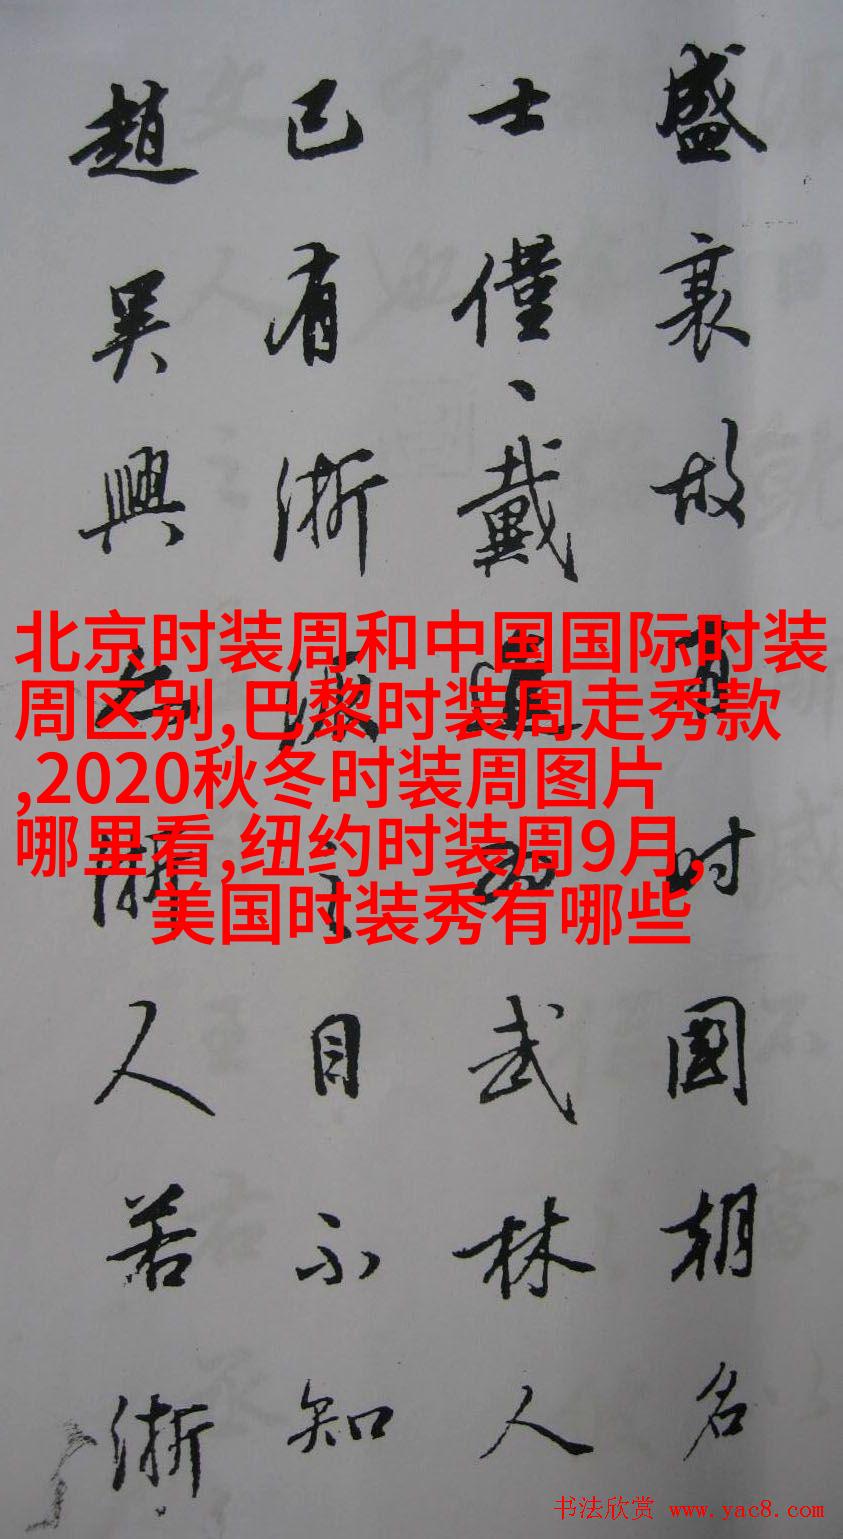 盛衰故有时國朝名
士僅、戴進为武林人
已有浙派之目不知
趙吳興亦浙人若浙
北京时装周和中国国际时装
周区别,巴黎时装周走秀款
,2020秋冬时装周图片
哪里看,纽约时装周9月,
美国时装秀有哪些
书法欣赏 www.yac8.com